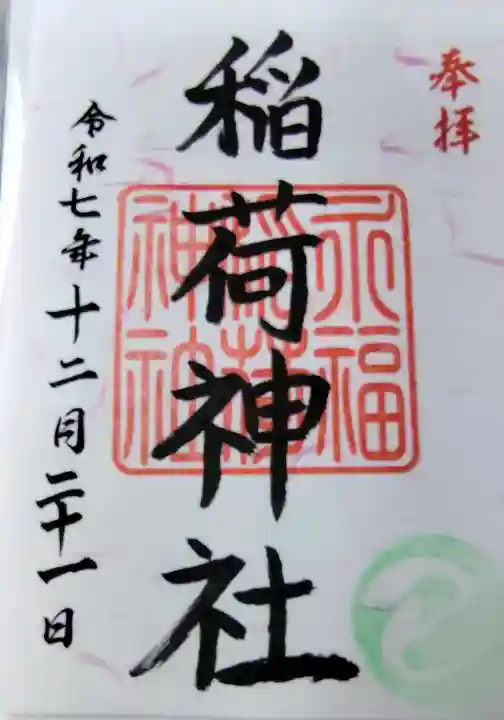 奉拝
稲荷神社
永福
稲荷
神社
令和七年十二月二十一日